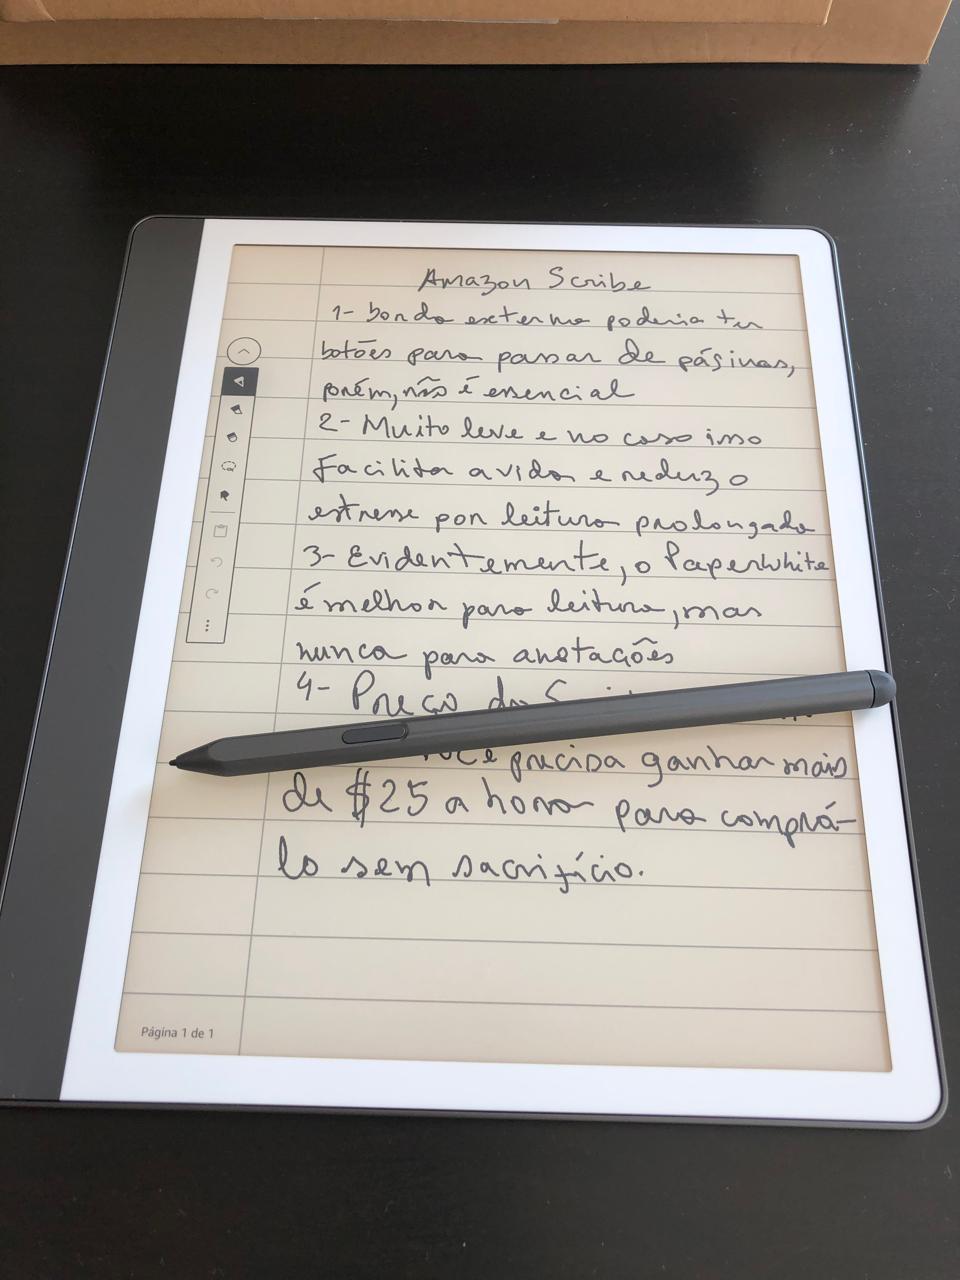 Amazon Scribe
1- borda externa poderia ter
botões para passar de páginas,
porém, não é essencial
2- Muito leve e no caso isso
facilita a vida e reduz o
estresse por leitura prolongada
3- Evidentemente, o Paperwhite
é melhor para leitura, mas
nunca para anotações
4- Preço do
você precisa ganhar mais
de $25 a hora para comprá-
lo sem sacrifício.
Página 1 de 1